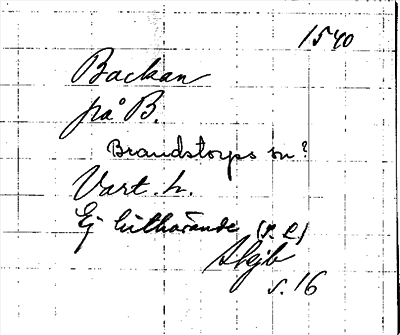 1540
Backan
på B.
Brandstorps sn?
Vart. h.
Ej hithörande (s. e)
s. 16